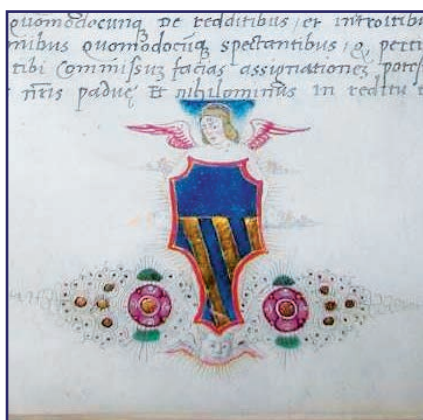 quomodocunq; de redditibus, et introitibu
mibus quomodociq; spectantibus, q, perti
tibi Commissuz facias assignationez potes
nris paduę Et nihilominus in reditu